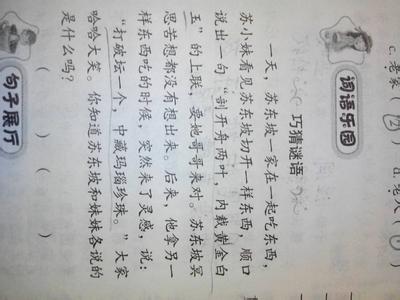 c.老家（ ） d.老人（ ）
词语乐园
巧猜谜语
一天，苏东坡一家在一起吃东西，
苏小妹看见苏东坡切开一样东西，顺口
说出一句“剖开舟两叶，内载黄金白
玉”的上联，要她哥哥来对。苏东坡冥
思苦想都没有想出来。后来，他拿另一
样东西吃的时候，突然来了灵感，说：
“打破坛一个，中藏玛瑙珍珠。”大家
哈哈大笑。你知道苏东坡和妹妹各说的
是什么吗？
（ ）（ ）
句子展厅